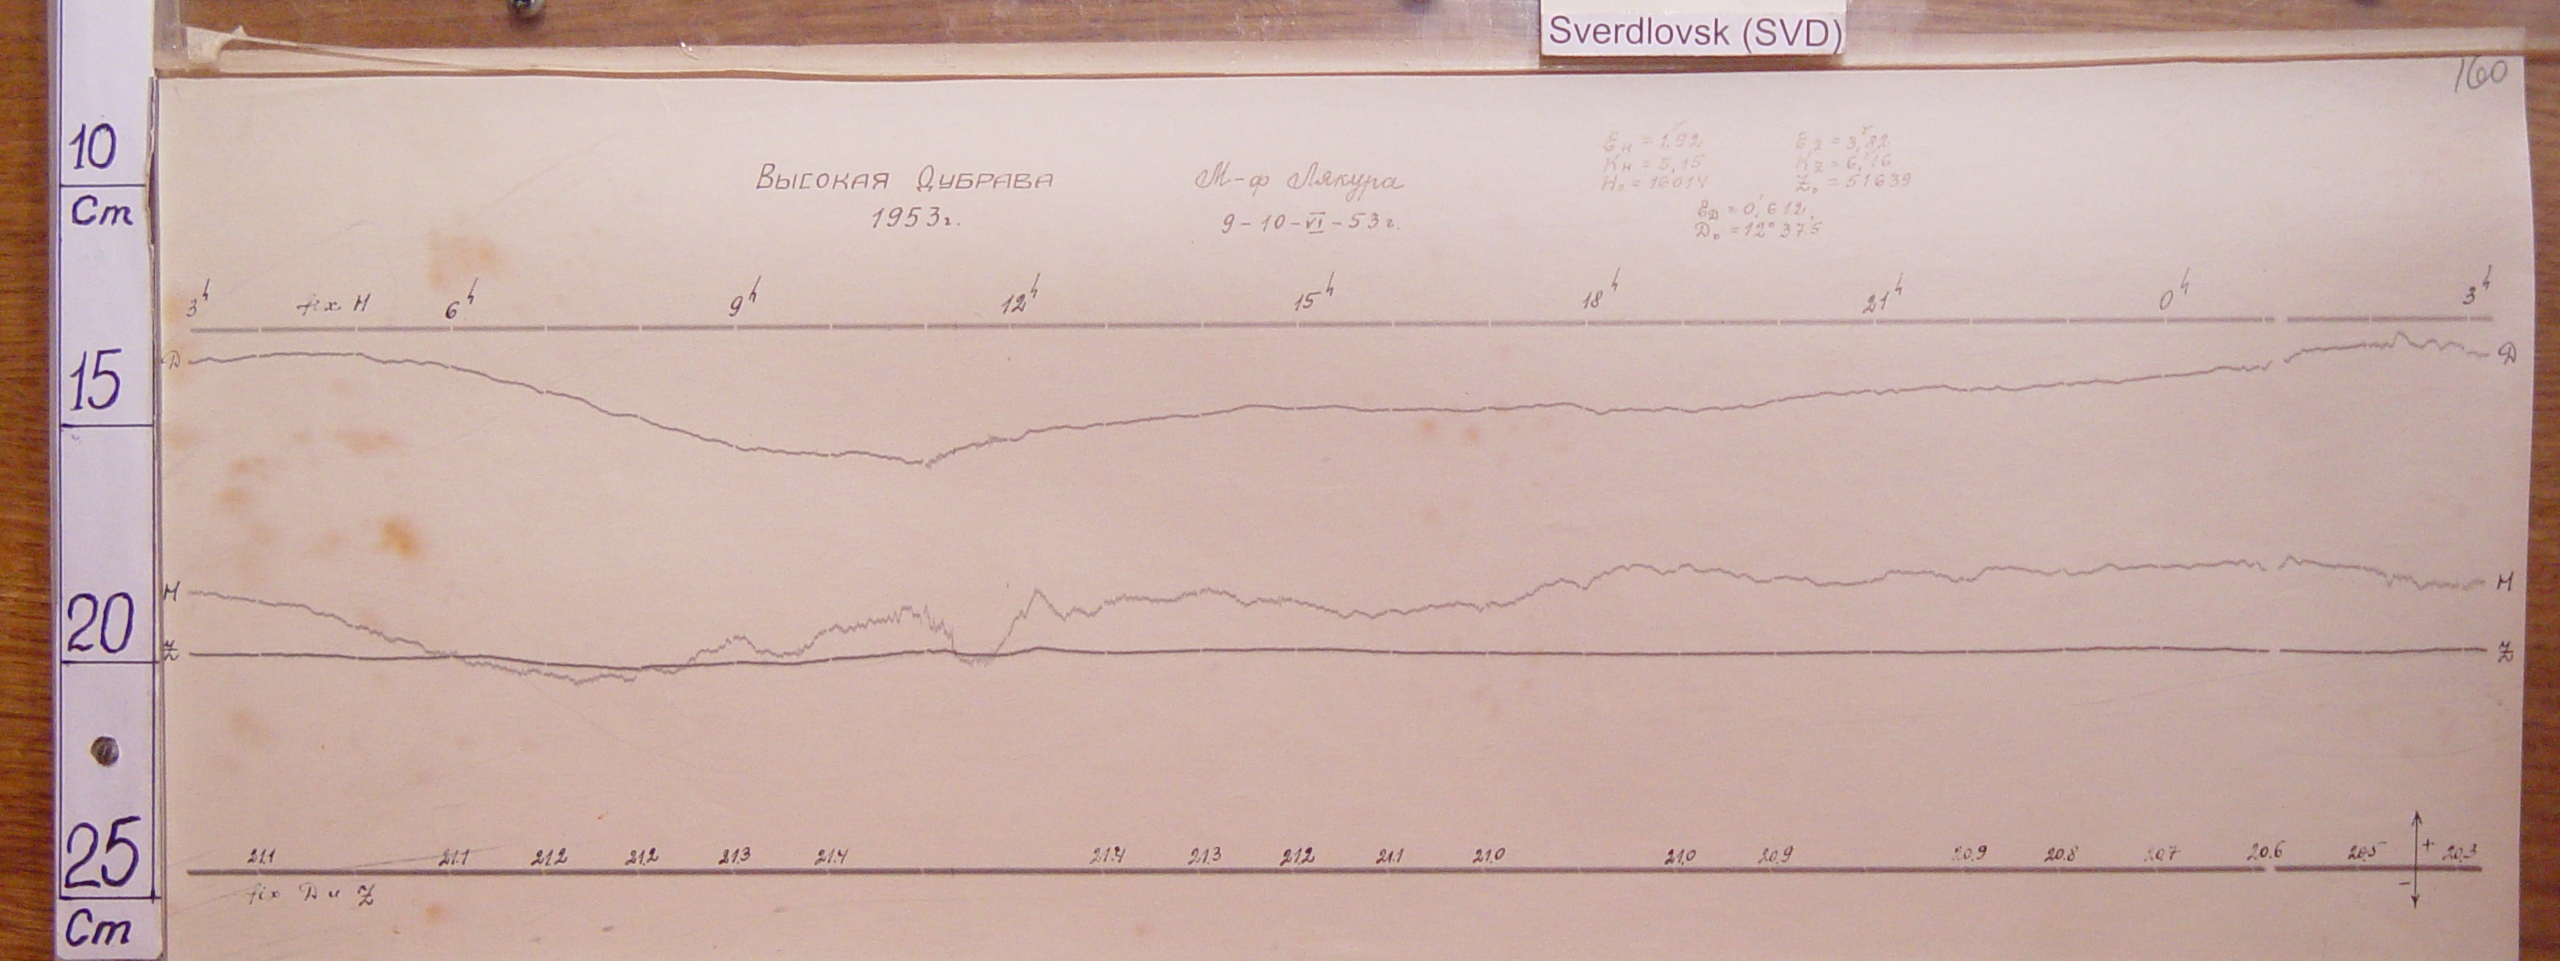 Sverdlovsk (SVD)
160
10
Cm
15
20
25
Cm
Высокая Дубрава
1953г.
М-ф Лякура
9-10-VI-53г.
Ɛн = 1,92
Kн = 5,15
H₀ = 16014
Ɛz = 3,82
Kz = 6,16
Z₀ = 51639
ƐD = 0,612
D₀ = 12° 37.5
3h fix H 6h 9h 12h 15h 18h 21h 0h 3h
D D
H H
Z Z
21.1 21.1 21.2 21.2 21.3 21.4 21.4 21.3 21.2 21.1 21.0 21.0 20.9 20.9 20.8 20.7 20.6 20.5 + 20.3
fix D и Z -